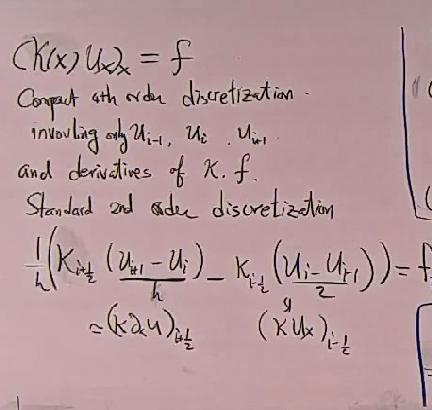 (K(x) Ux)x = f
Compact 4th order discretization.
involving only Ui-1, Ui, Ui+1.
and derivatives of K. f.
Standard 2nd order discretization
1/h (Ki+1/2 (Ui+1 - Ui)/h - Ki-1/2 (Ui - Ui-1)/2) = f
= (K∂xU)i+1/2 (K Ux)i-1/2